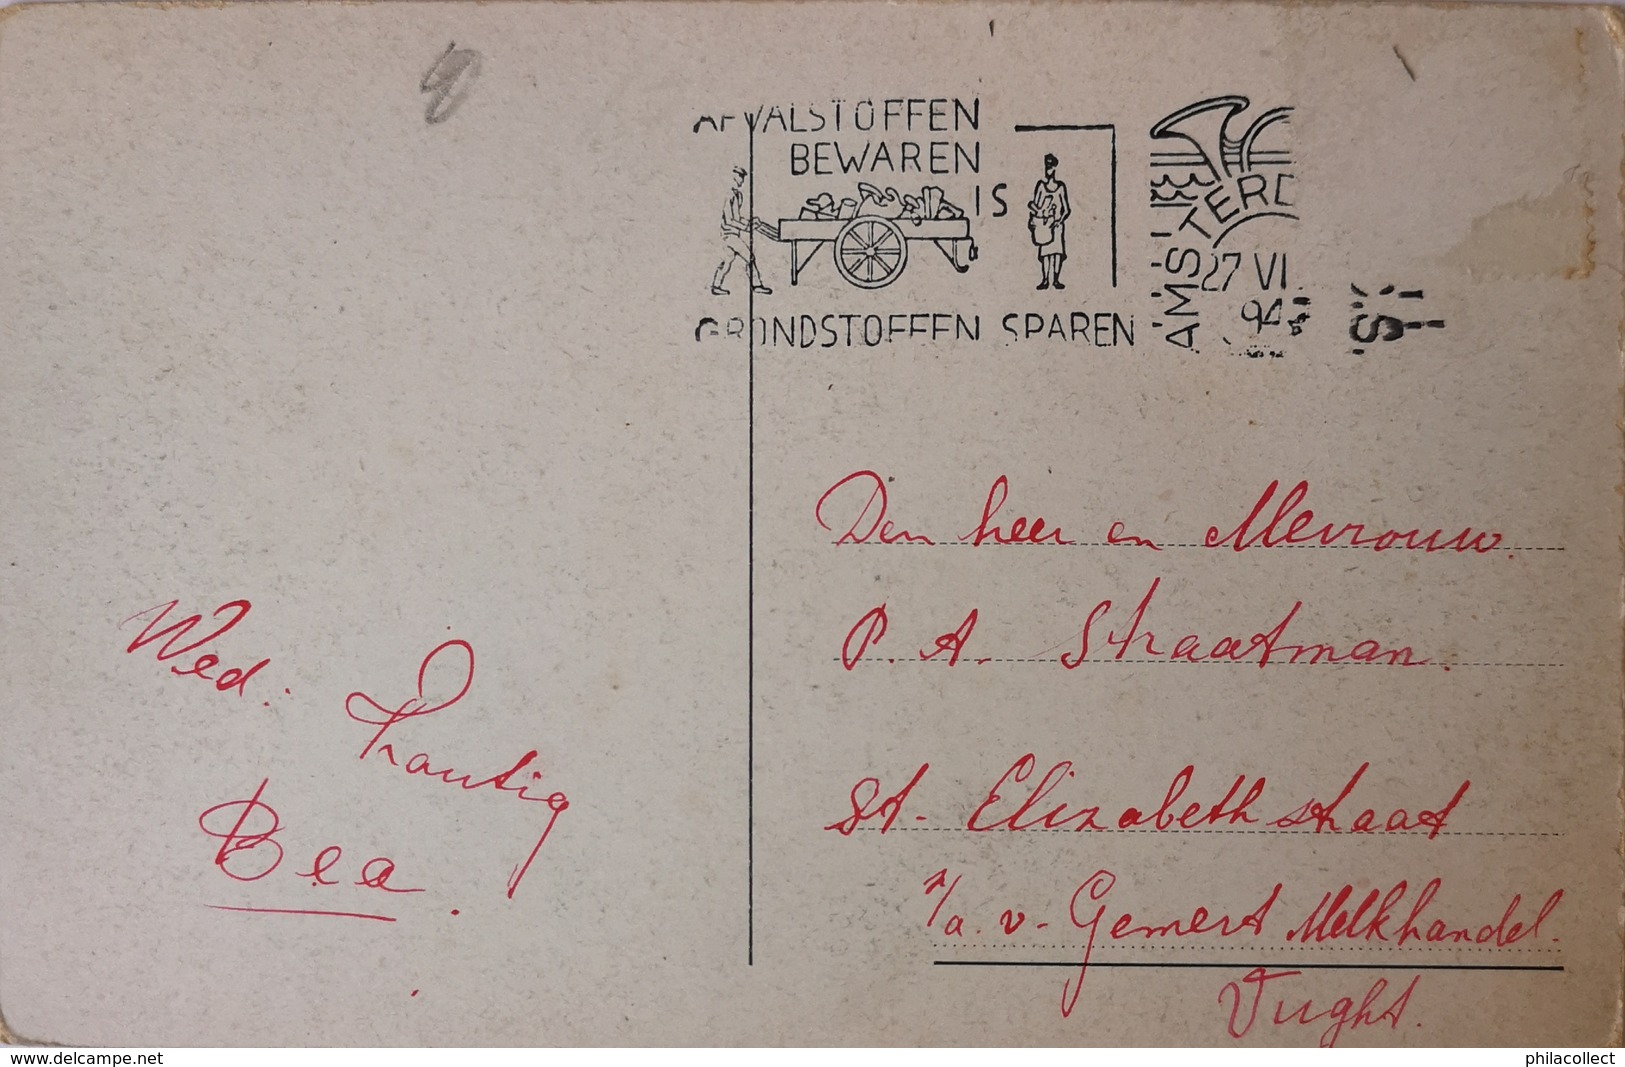 AFVALSTOFFEN
BEWAREN
IS
GRONDSTOFFEN SPAREN
AMSTERD
27 VI
194
Den heer en Mevrouw.
P. A. Straatman.
St. Elizabethstraat
p/a. v. Gemert Melkhandel.
Vught.
Wed: Trautig
Bea.
www.delcampe.net
philacollect